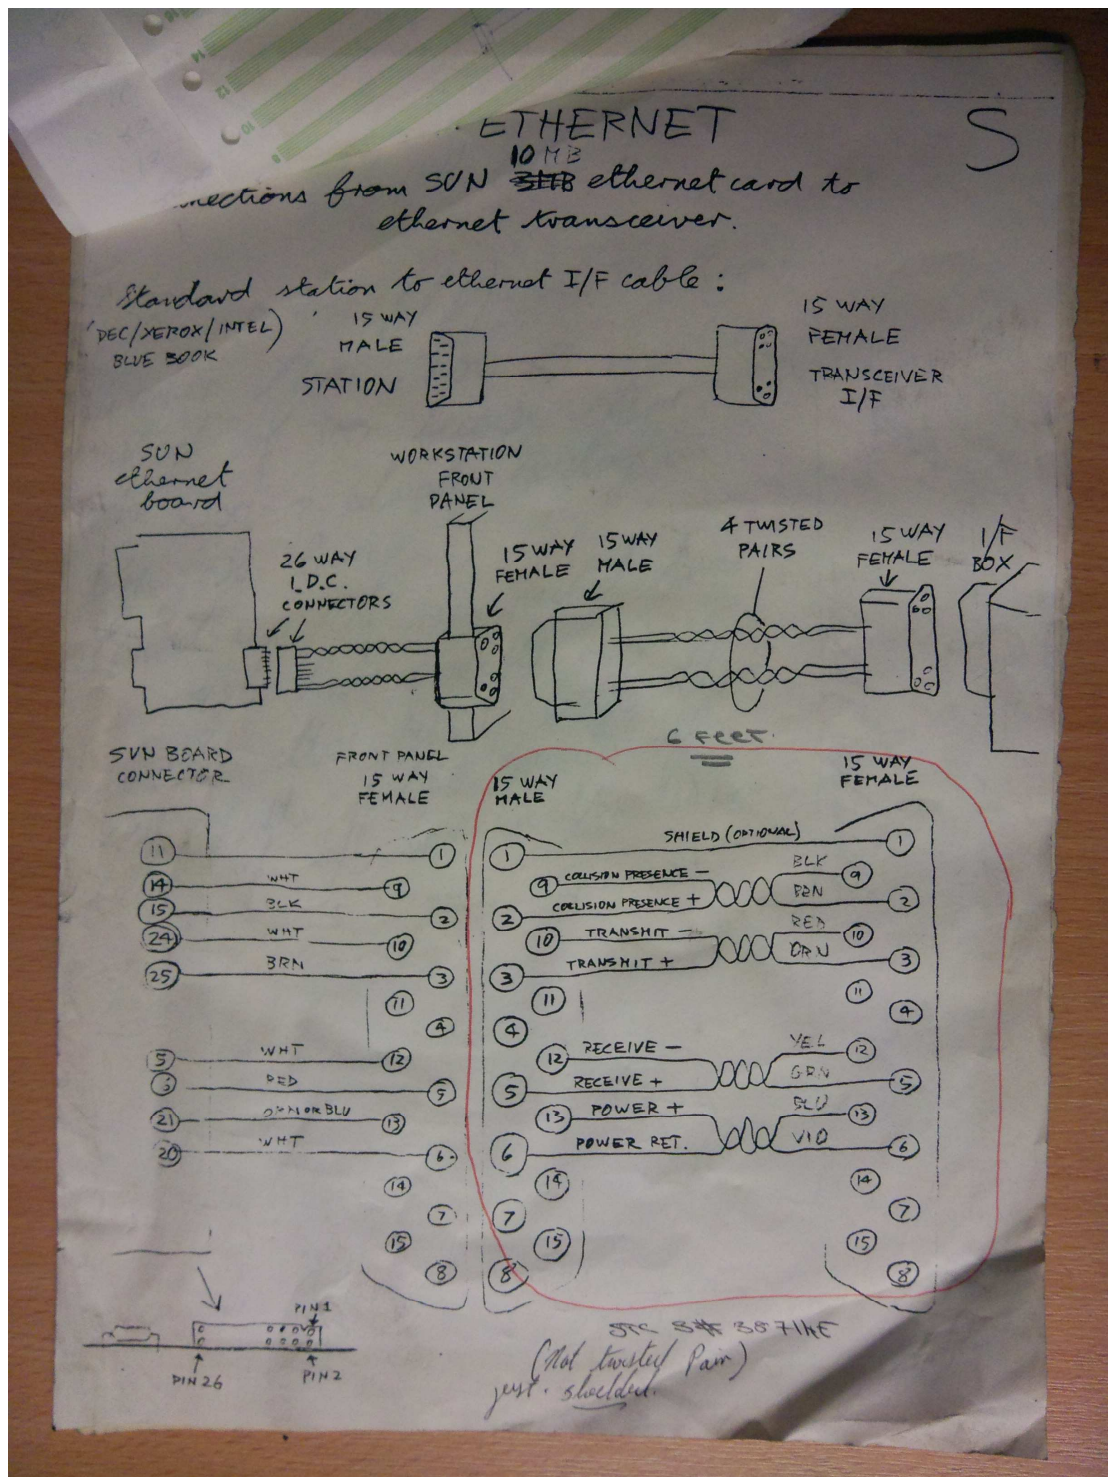 14
12
10
8
ETHERNET
S
10 MB
nections from SUN 3MB ethernet card to
ethernet transceiver.
Standard station to ethernet I/F cable :
(DEC/XEROX/INTEL)
BLUE BOOK
15 WAY
MALE
STATION
15 WAY
FEMALE
TRANSCEIVER
I/F
SUN
ethernet
board
WORKSTATION
FRONT
PANEL
26 WAY
I.D.C.
CONNECTORS
15 WAY
FEMALE
15 WAY
MALE
4 TWISTED
PAIRS
15 WAY
FEMALE
I/F
BOX
6 FEET.
SUN BOARD
CONNECTOR
FRONT PANEL
15 WAY
FEMALE
15 WAY
MALE
15 WAY
FEMALE
11 1
14 WHT 9
15 BLK 2
24 WHT 10
25 BRN 3
11
4
5 WHT 12
3 RED 5
21 ORN OR BLU 13
20 WHT 6
14
7
15
8
1 SHIELD (OPTIONAL) 1
9 COLLISION PRESENCE - BLK 9
2 COLLISION PRESENCE + BRN 2
10 TRANSMIT - RED 10
3 TRANSMIT + ORN 3
11 11
4 4
12 RECEIVE - YEL 12
5 RECEIVE + GRN 5
13 POWER + BLU 13
6 POWER RET. VIO 6
14 14
7 7
15 15
8 8
PIN 1
PIN 26
PIN 2
(Not twisted Pair)
just. shielded.